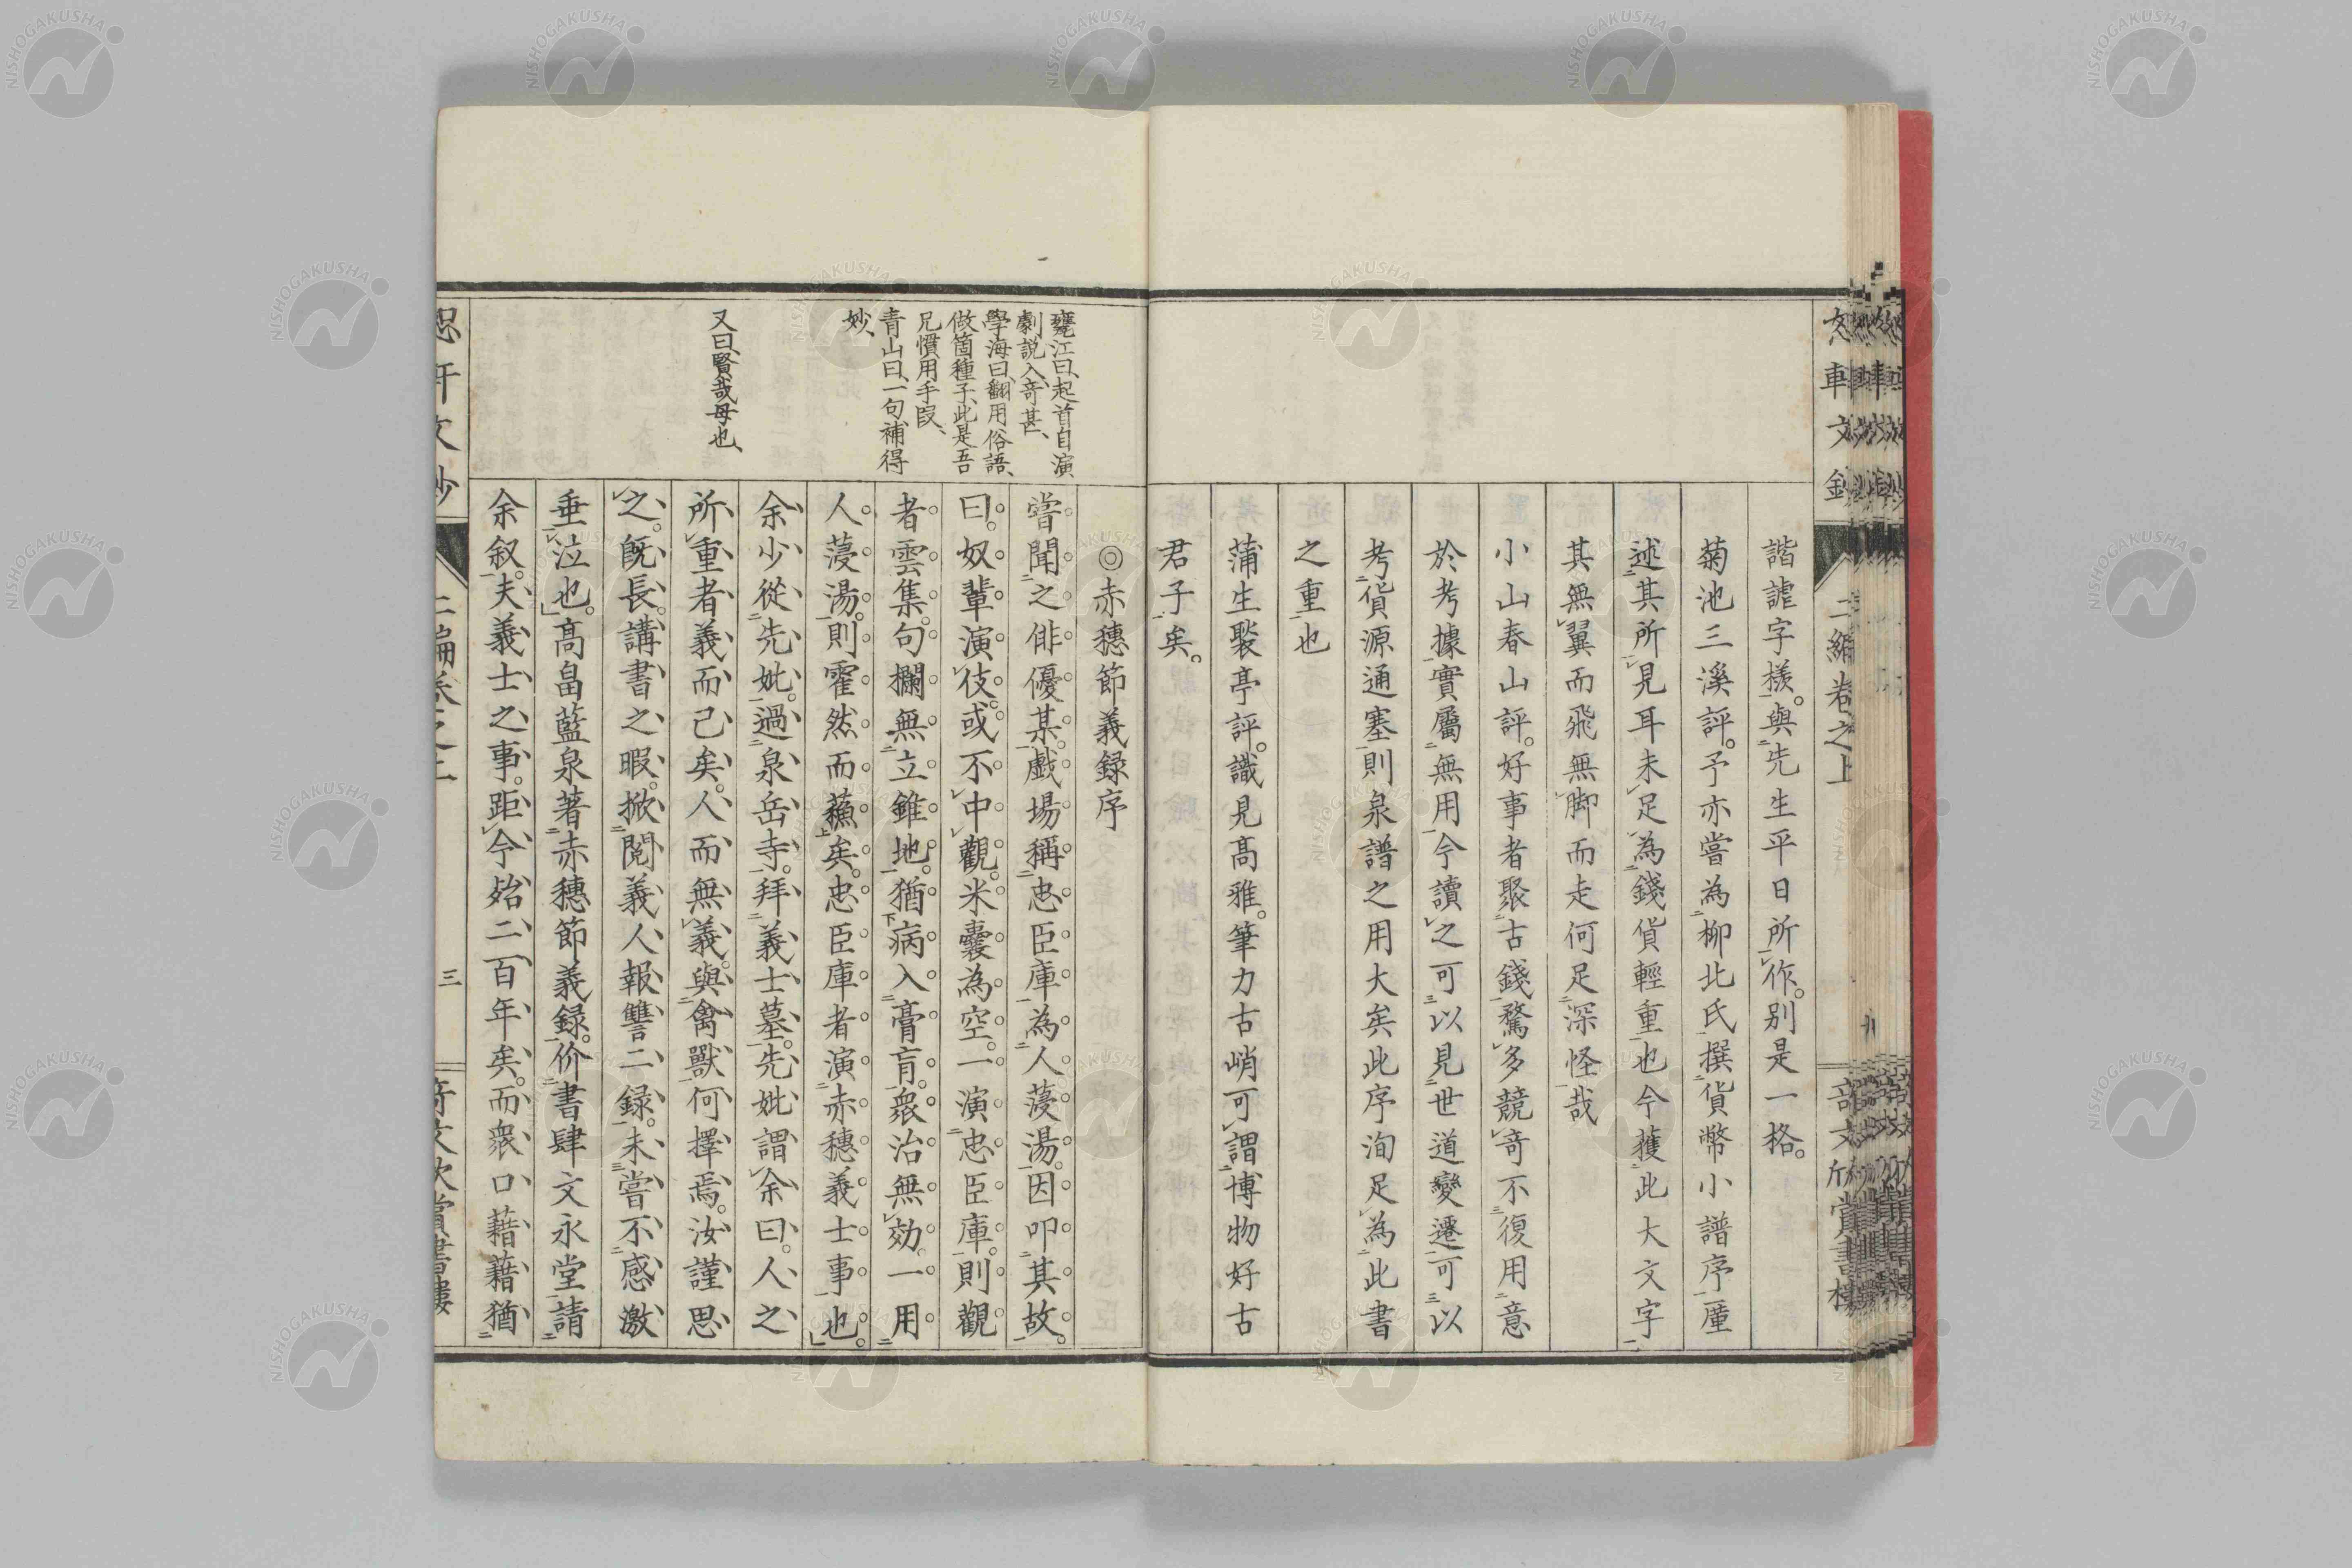 諧謔字樣。與先生平日所作。別是一格。
菊池三溪評。予亦嘗為柳北氏撰貨幣小譜序厪
述其所見耳未足為錢貨輕重也今獲此大文字
其無翼而飛無脚而走何足深怪哉
小山春山評。好事者聚古錢騖多競奇不復用意
於考據實屬無用今讀之可以見世道變遷可以
考貨源通塞則泉譜之用大矣此序洵足為此書
之重也
蒲生褧亭評。識見高雅。筆力古峭可謂博物好古
君子矣。
二編卷之上
◎赤穗節義録序
嘗聞之俳優某。戲場稱忠臣庫為人葠湯。因叩其故。
曰。奴輩演伎。或不中觀。米囊為空。一演忠臣庫。則觀
者雲集。句欄無立錐地。猶病入膏肓。衆治無効。一用
人葠湯。則霍然而蘓矣。忠臣庫者演赤穗義士事也。
余少從先妣。過泉岳寺。拜義士墓。先妣謂余曰。人之
所重者義而已矣。人而無義。與禽獸何擇焉。汝謹思
之。既長。講書之暇。掀閲義人報讐二録。未嘗不感激
垂泣也。高畠藍泉著赤穗節義録。价書肆文永堂請
余叙。夫義士之事。距今殆二百年矣。而衆口藉藉猶
甕江曰、起首自演
劇説入、奇甚、
學海曰、翻用俗語、
做箇種子、此是吾
兄慣用手段、
青山曰、一句補得
妙、
又曰、賢哉母也、
三